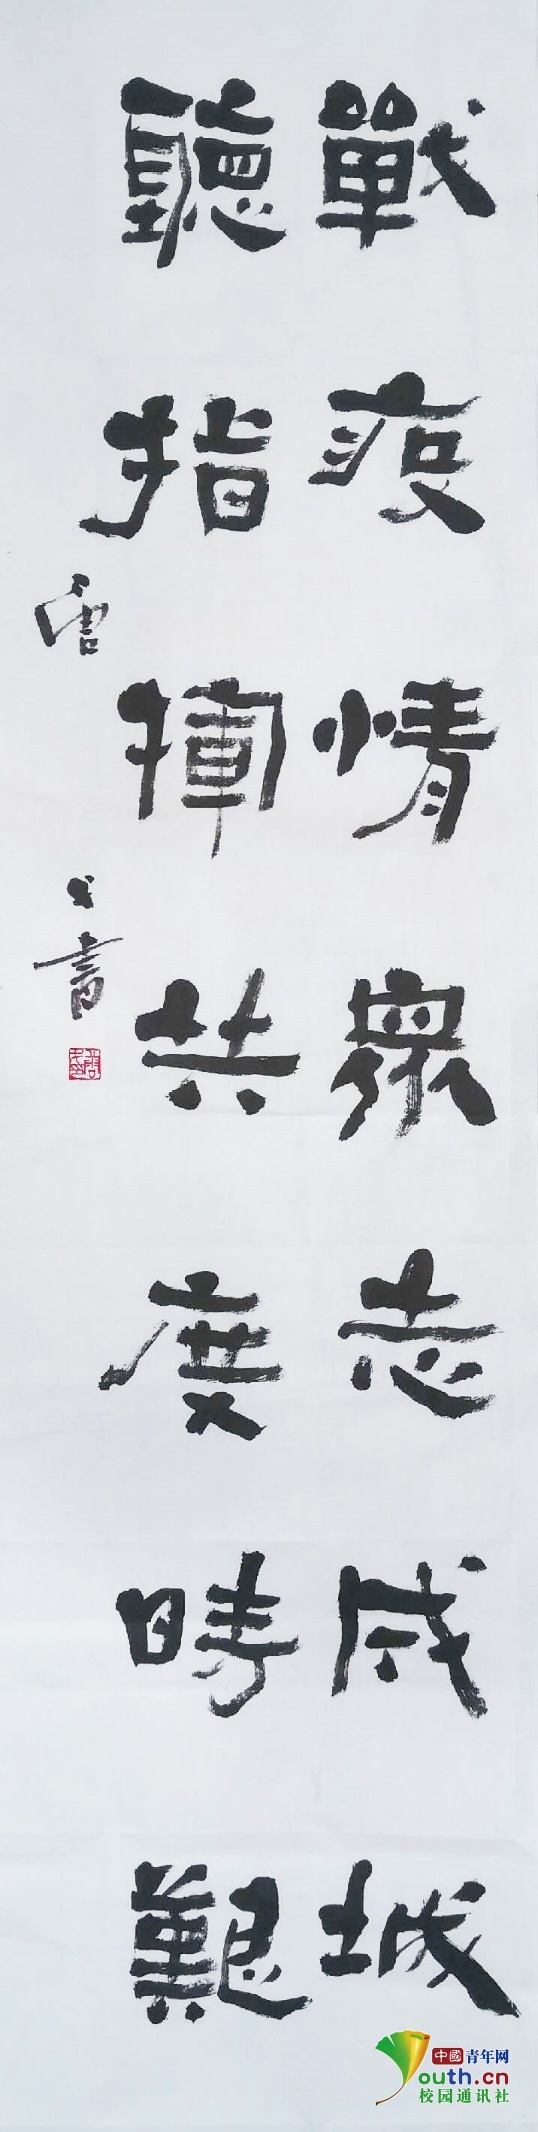 戰疫情衆志成城
聽指揮共度時艱
書
中國青年网
youth.cn
校园通讯社